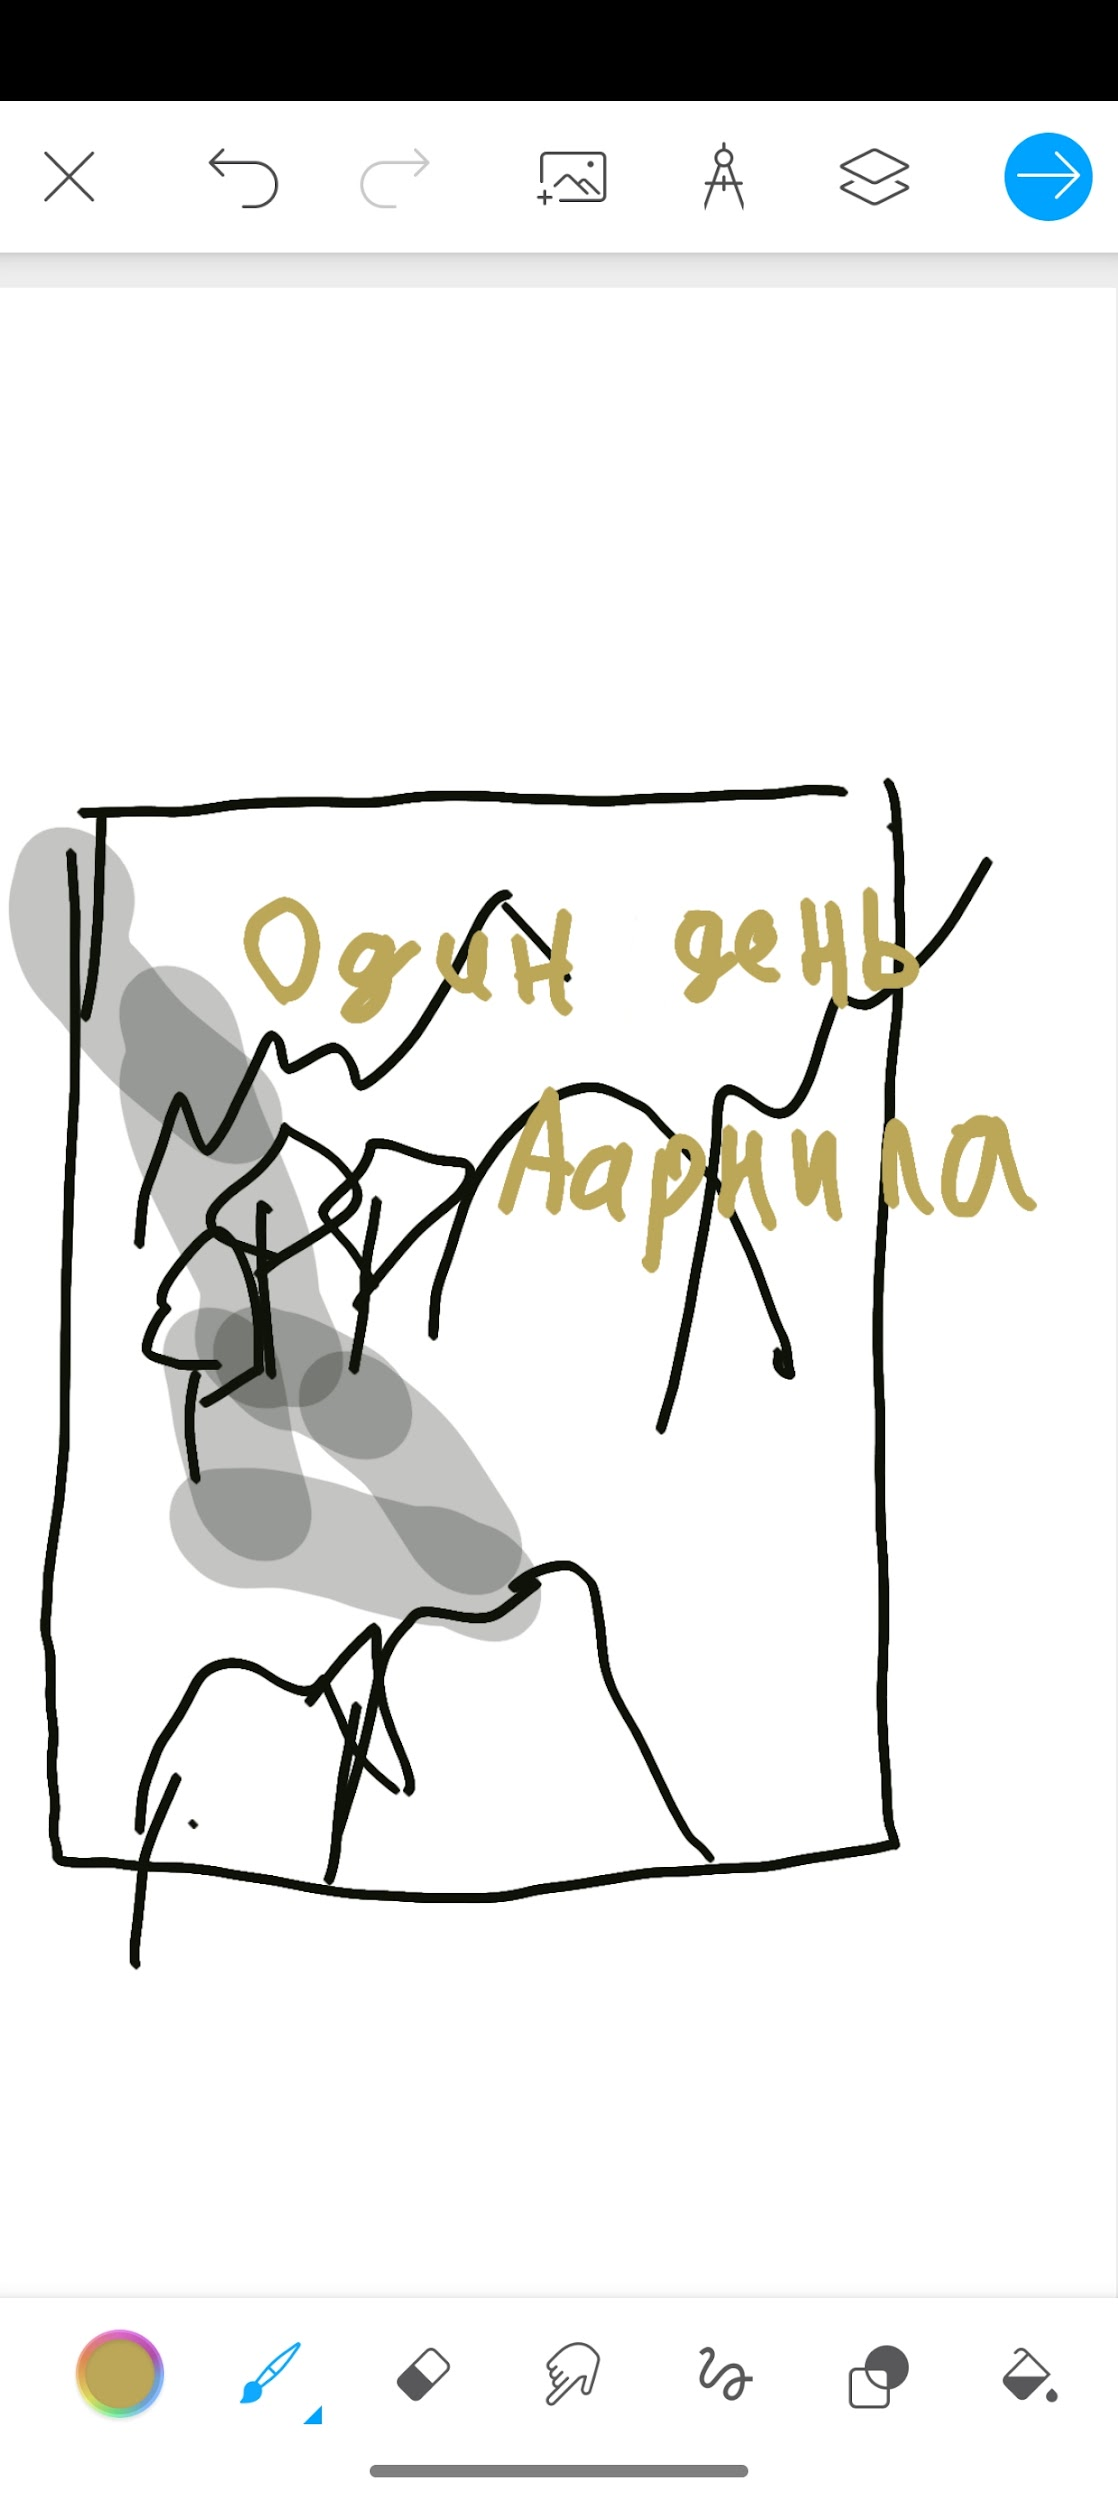 Один день
Аарила